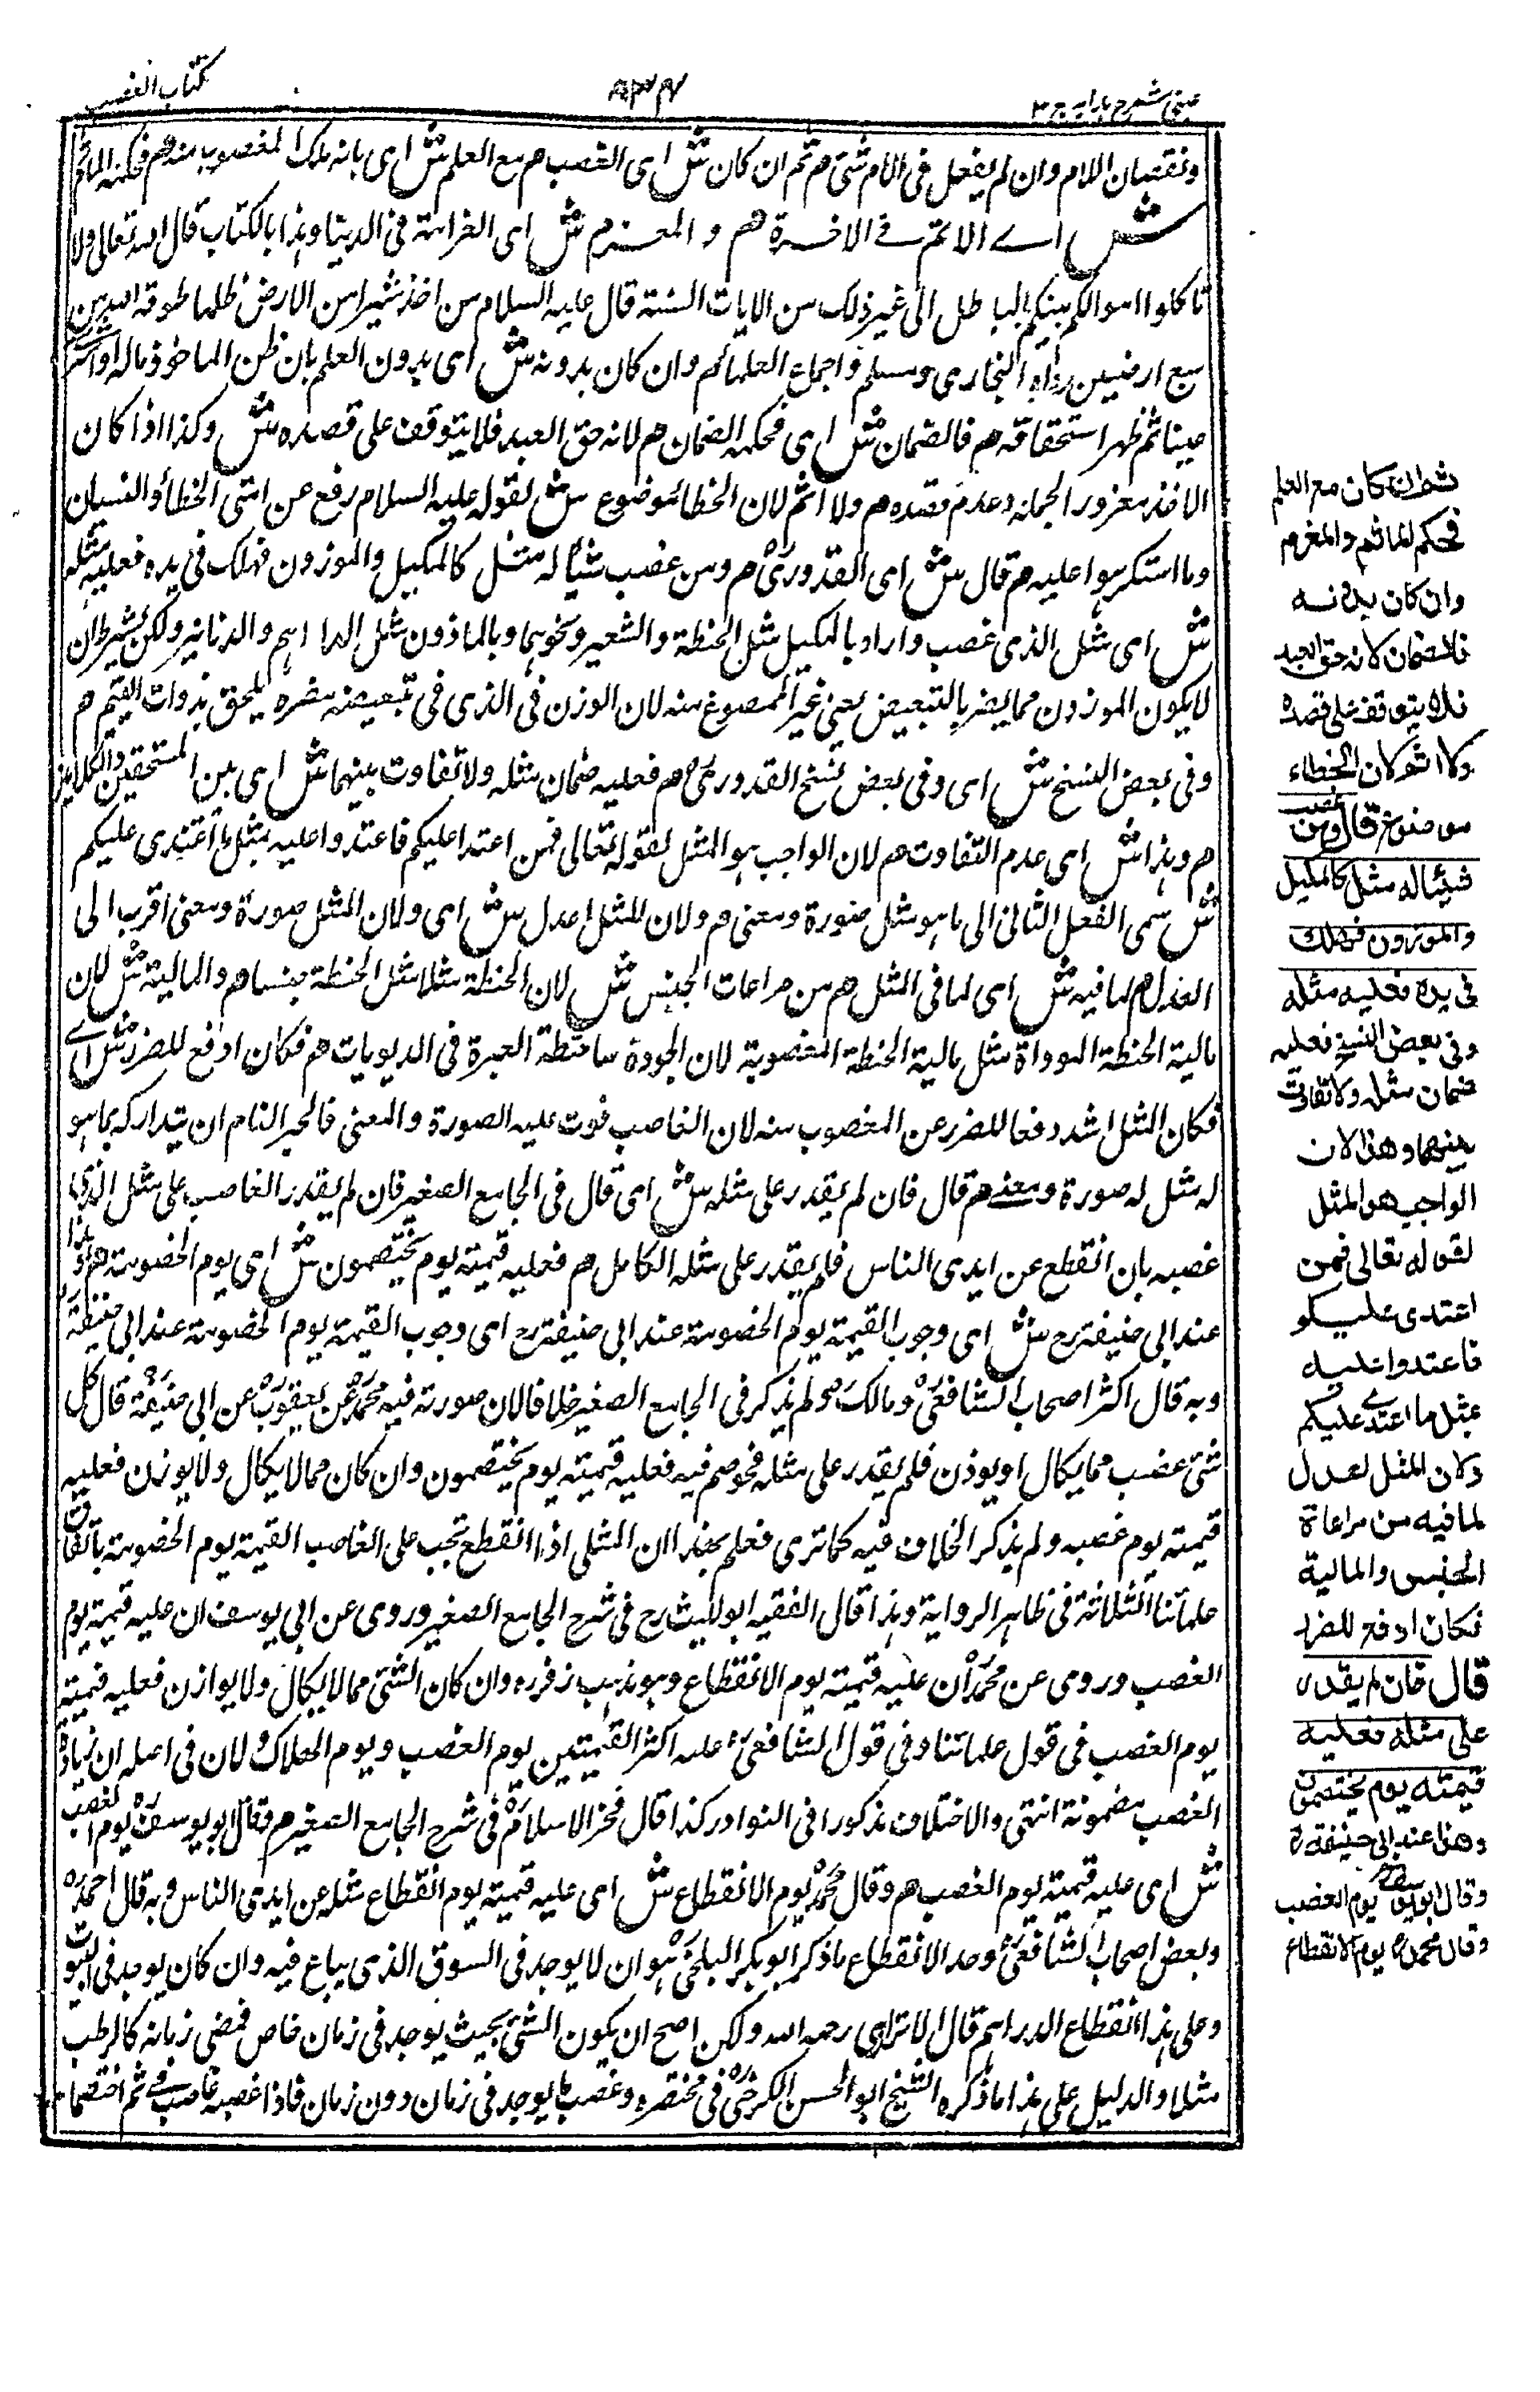 عینی شرح ہدایہ ج ۳
کتاب الغصب
ونقصان اللام وان لم یفعل فی الام شئ هم ثم ان کان ش ای الغصب هم مع العلم ش ای بانه ملک المغصوب منه هم فحکمه الماثم
ش اے الاثم فے الاخرة هم و المغرم ش ای الغرامة فی الدنیا وہذا بالکتاب قال الله تعالی ولا
تاکلوا اموالکم بینکم بالباطل الی غیر ذلک من الایات السنة قال علیه السلام من اخذ شبرا من الارض ظلما طوقه الله من
سبع ارضین رواہ البخاری ومسلم واجماع العلما هم وان کان بدونه ش ای بدون العلم بان ظن الماخوذ ماله او اشتری
عینا ثم ظهر استحقاقه هم فالضمان ش ای فحکمه الضمان هم لانه حق العبد فلا یتوقف علی قصده ش وکذا اذا کان
الاخذ معزور الجهله وعدم قصده هم ولا اثم لان الخطا موضوع ش لقوله علیه السلام رفع عن امتی الخطأ والنسیان
وما استکرہوا علیه هم قال ش ای القدوری هم ومن غصب شیأ له مثل کالمکیل والموزون فهلک فی یده فعلیه مثله
ش ای مثل الذی غصب واراد بالمکیل مثل الحنطة والشعیر ونحوہما وبالماذون مثل الدراہم والدنانیر ولکن یشترط ان
لایکون الموزون مما یضر بالتبعیض یعنی غیر المصوغ منه لان الوزن فی الذی فی تبعیضه مضرہ یلحق بذوات القیم هم
وفی بعض النسخ ش ای وفی بعض نسخ القدوری هم فعلیه ضمان مثله ولا تفاوت بینهما ش ای بین المستحقین والکلامین
هم وہذا ش ای عدم التفاوت هم لان الواجب ہو المثل لقوله تعالی فمن اعتدا علیکم فاعتدوا علیه بمثل ما اعتدی علیکم
ش سمی الفعل الثانی الی ما ہو مثل صورة ومعنی هم ولان المثل اعدل ش ای ولان المثل صورة ومعنی اقرب الی
العدل هم لما فیه ش ای لما فی المثل هم من مراعات الجنس ش لان الحنطة مثلا مثل الحنطة جنسا هم والمالیة ش لان
مالیة الحنطة المودّاة مثل مالیة الحنطة المغصوبة لان الجودة ساقطة العبرة فی الدیویات هم فکان ادفع للضرر ش اے
فکان المثل اشد دفعا للضرر عن المغصوب منه لان الغاصب فوت علیه الصورة والمعنی فالجبر التام ان یتدارکه بما ہو
له مثل له صورة ومعنے هم قال فان لم یقدر علی مثله ش ای قال فی الجامع الصغیر فان لم یقدر الغاصب علی مثل الذی
غصبه بان انقطع عن ایدی الناس فلم یقدر علی مثله الکامل هم فعلیه قیمته یوم یختصمون ش ای یوم الخصومة هم وہذا
عند ابی حنیفة رح ش ای وجوب القیمة یوم الخصومة عند ابی حنیفة رح ای وجوب القیمة یوم الخصومة عند ابی حنیفة
وبه قال اکثر اصحاب الشافعی ومالک ولم یذکر فی الجامع الصغیر خلافا لان صورته فیه محمد عن یعقوب عن ابی حنیفة قال کل
شئ غصب مما یکال او یوذن فلم یقدر علی مثله فخوصم فیه فعلیه قیمته یوم یختصمون وان کان مما لا یکال ولا یوزن فعلیه
قیمته یوم غصبه ولم یذکر الخلاف فیه کما تری فعلم بهذا ان المثلی اذا انقطع تجب علی الغاصب القیمة یوم الخصومة باتفاق
علمائنا الثلاثة فی ظاہر الروایة وہذا قال الفقیه ابو اللیث رح فی شرح الجامع الصغیر وروی عن ابی یوسف ان علیه قیمته یوم
الغصب وروی عن محمد ان علیه قیمته یوم الانقطاع وہو مذہب زفر رہ وان کان الشئ مما لا یکال ولا یوازن فعلیه قیمته
یوم الغصب فی قول علمائنا وفی قول الشافعی علیه اکثر القیمتین یوم الغصب ویوم الهلاک لان فی اصله ان زیادة
الغصب مضمونة انتهی والاختلاف مذکورا فی النوادر کذا قال فخر الاسلام فی شرح الجامع الصغیر هم وقال ابو یوسف یوم الغصب
ش ای علیه قیمته یوم الغصب هم وقال محمد یوم الانقطاع ش ای علیه قیمته یوم انقطاع مثله عن ایدی الناس وبه قال احمد
وبعض اصحاب الشافعی وحد الانقطاع ما ذکر ابو بکر البلخی ہو ان لا یوجد فی السوق الذی یباع فیه وان کان یوجد فی البیوت
وعلی ہذا انقطاع الدراہم قال الاترازی رحمه الله ولکن اصح ان یکون الشئ بحیث یوجد فی زمان خاص فمضی زمانه کالرطب
مثلا والدلیل علی ہذا ما ذکره الشیخ ابو الحسن الکرخی فی مختصره وغصب ما یوجد فی زمان دون زمان فاذا غصبه غاصب فے ثم اختصما
ثم ان کان مع العلم
فحکمه الماثم والمغرم
وان کان بدونه
فالضمان لانه حق العبد
فلا یتوقف علی قصده
ولا اثم لان الخطاء
موضوع قال ومن غصب
شیئا له مثل کالمکیل
والموزون فهلک
فی یده فعلیه مثله
وفی بعض النسخ فعلیه
ضمان مثله ولا تفاوت
بینهما وهذا لان
الواجب هو المثل
لقوله تعالی فمن
اعتدی علیکم
فاعتدوا علیه
بمثل ما اعتدے علیکم
ولان المثل اعدل
لما فیه من مراعاة
الجنس والمالیة
فکان ادفع للضرر
قال فان لم یقدر
علی مثله فعلیه
قیمته یوم یختصمون
وهذا عند ابی حنیفة رہ
وقال ابو یوسف یوم الغصب
وقال محمد یوم الانقطاع